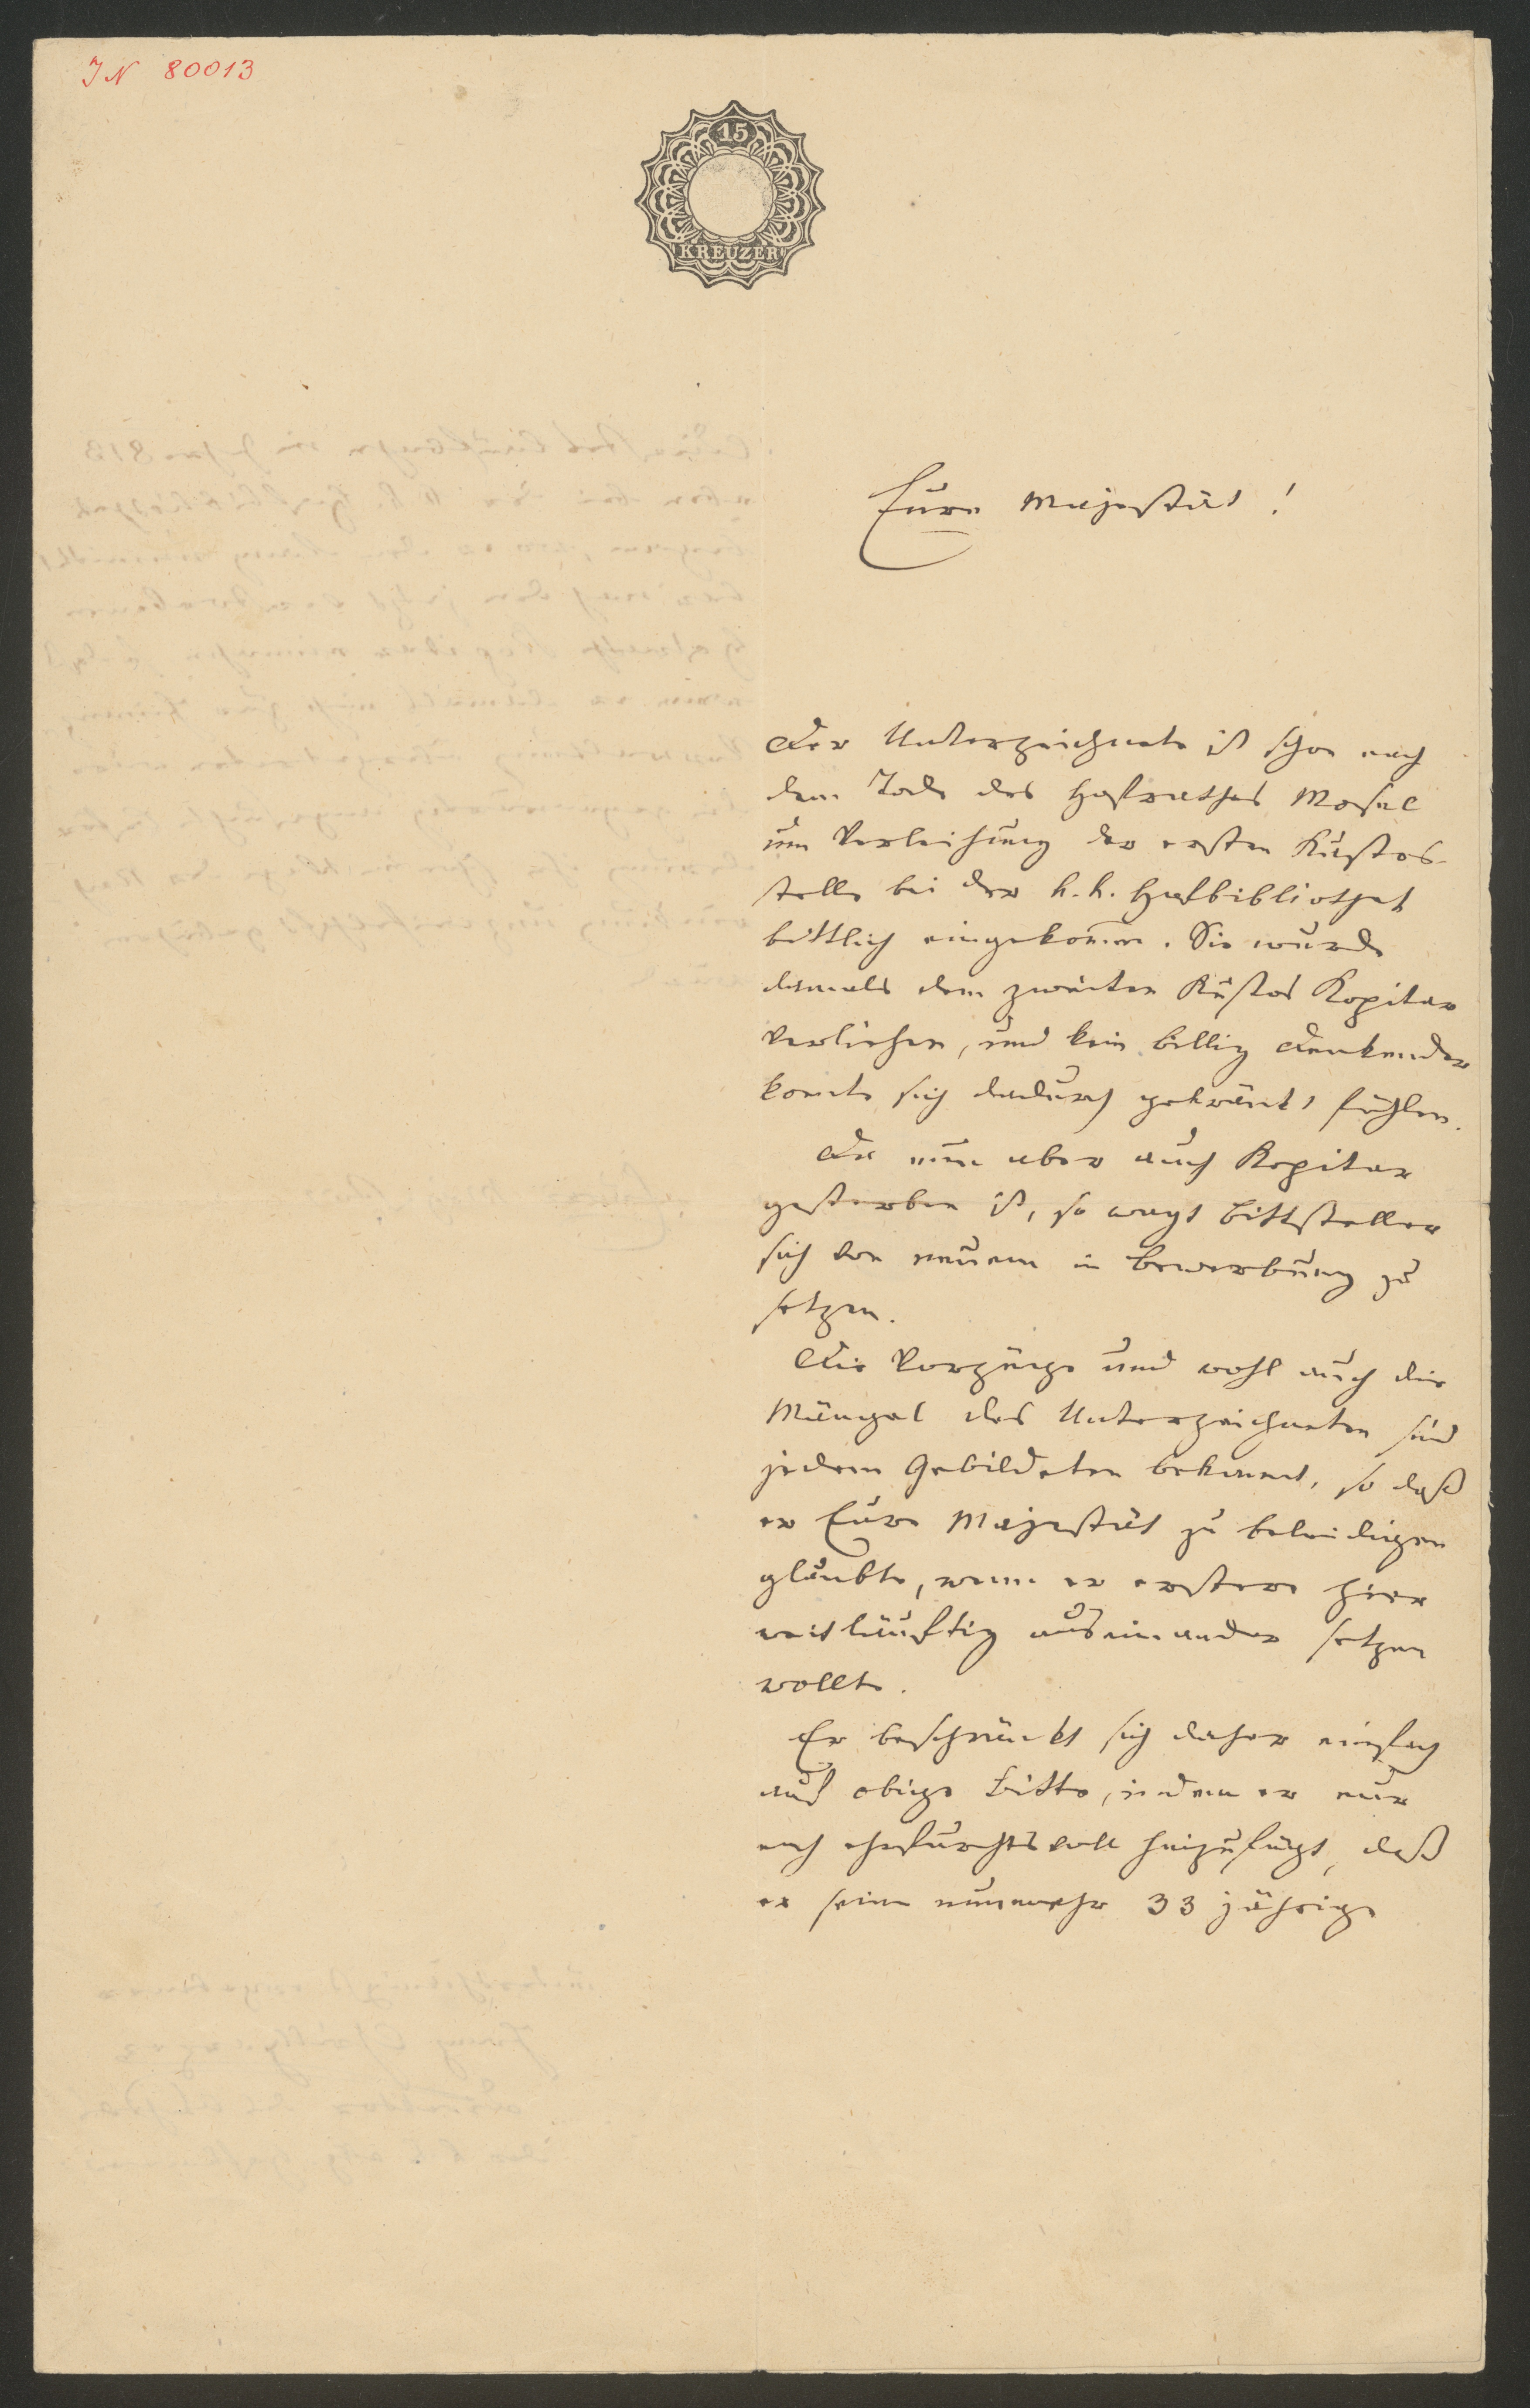 IN 80013
15
KREUZER
Eure Majestät!
Der Unterzeichnete ist schon nach
dem Tode des Hofrathes Mosel
um Verleihung der ersten Kustos-
stelle bei der k. k. Hofbibliothek
bittlich eingekommen. Sie wurde
damals dem zweiten Kustos Kopitar
verliehen, und kein billig Denkender
konnte sich dadurch gekränkt fühlen.
Da nun aber auch Kopitar
gestorben ist, so wagt Bittsteller
sich von neuem in Bewerbung zu
setzen.
Die Vorzüge und wohl auch die
Mängel des Unterzeichneten sind
jedem Gebildeten bekannt, so daß
er Eure Majestät zu beleidigen
glaubte, wenn er erstere hier
weitläuftig auseinander setzen
wollte.
Er beschränkt sich daher einfach
auf obige Bitte, indem er nur
noch ehrfurchtsvoll hinzufügt, daß
er seine nunmehr 33 jährige